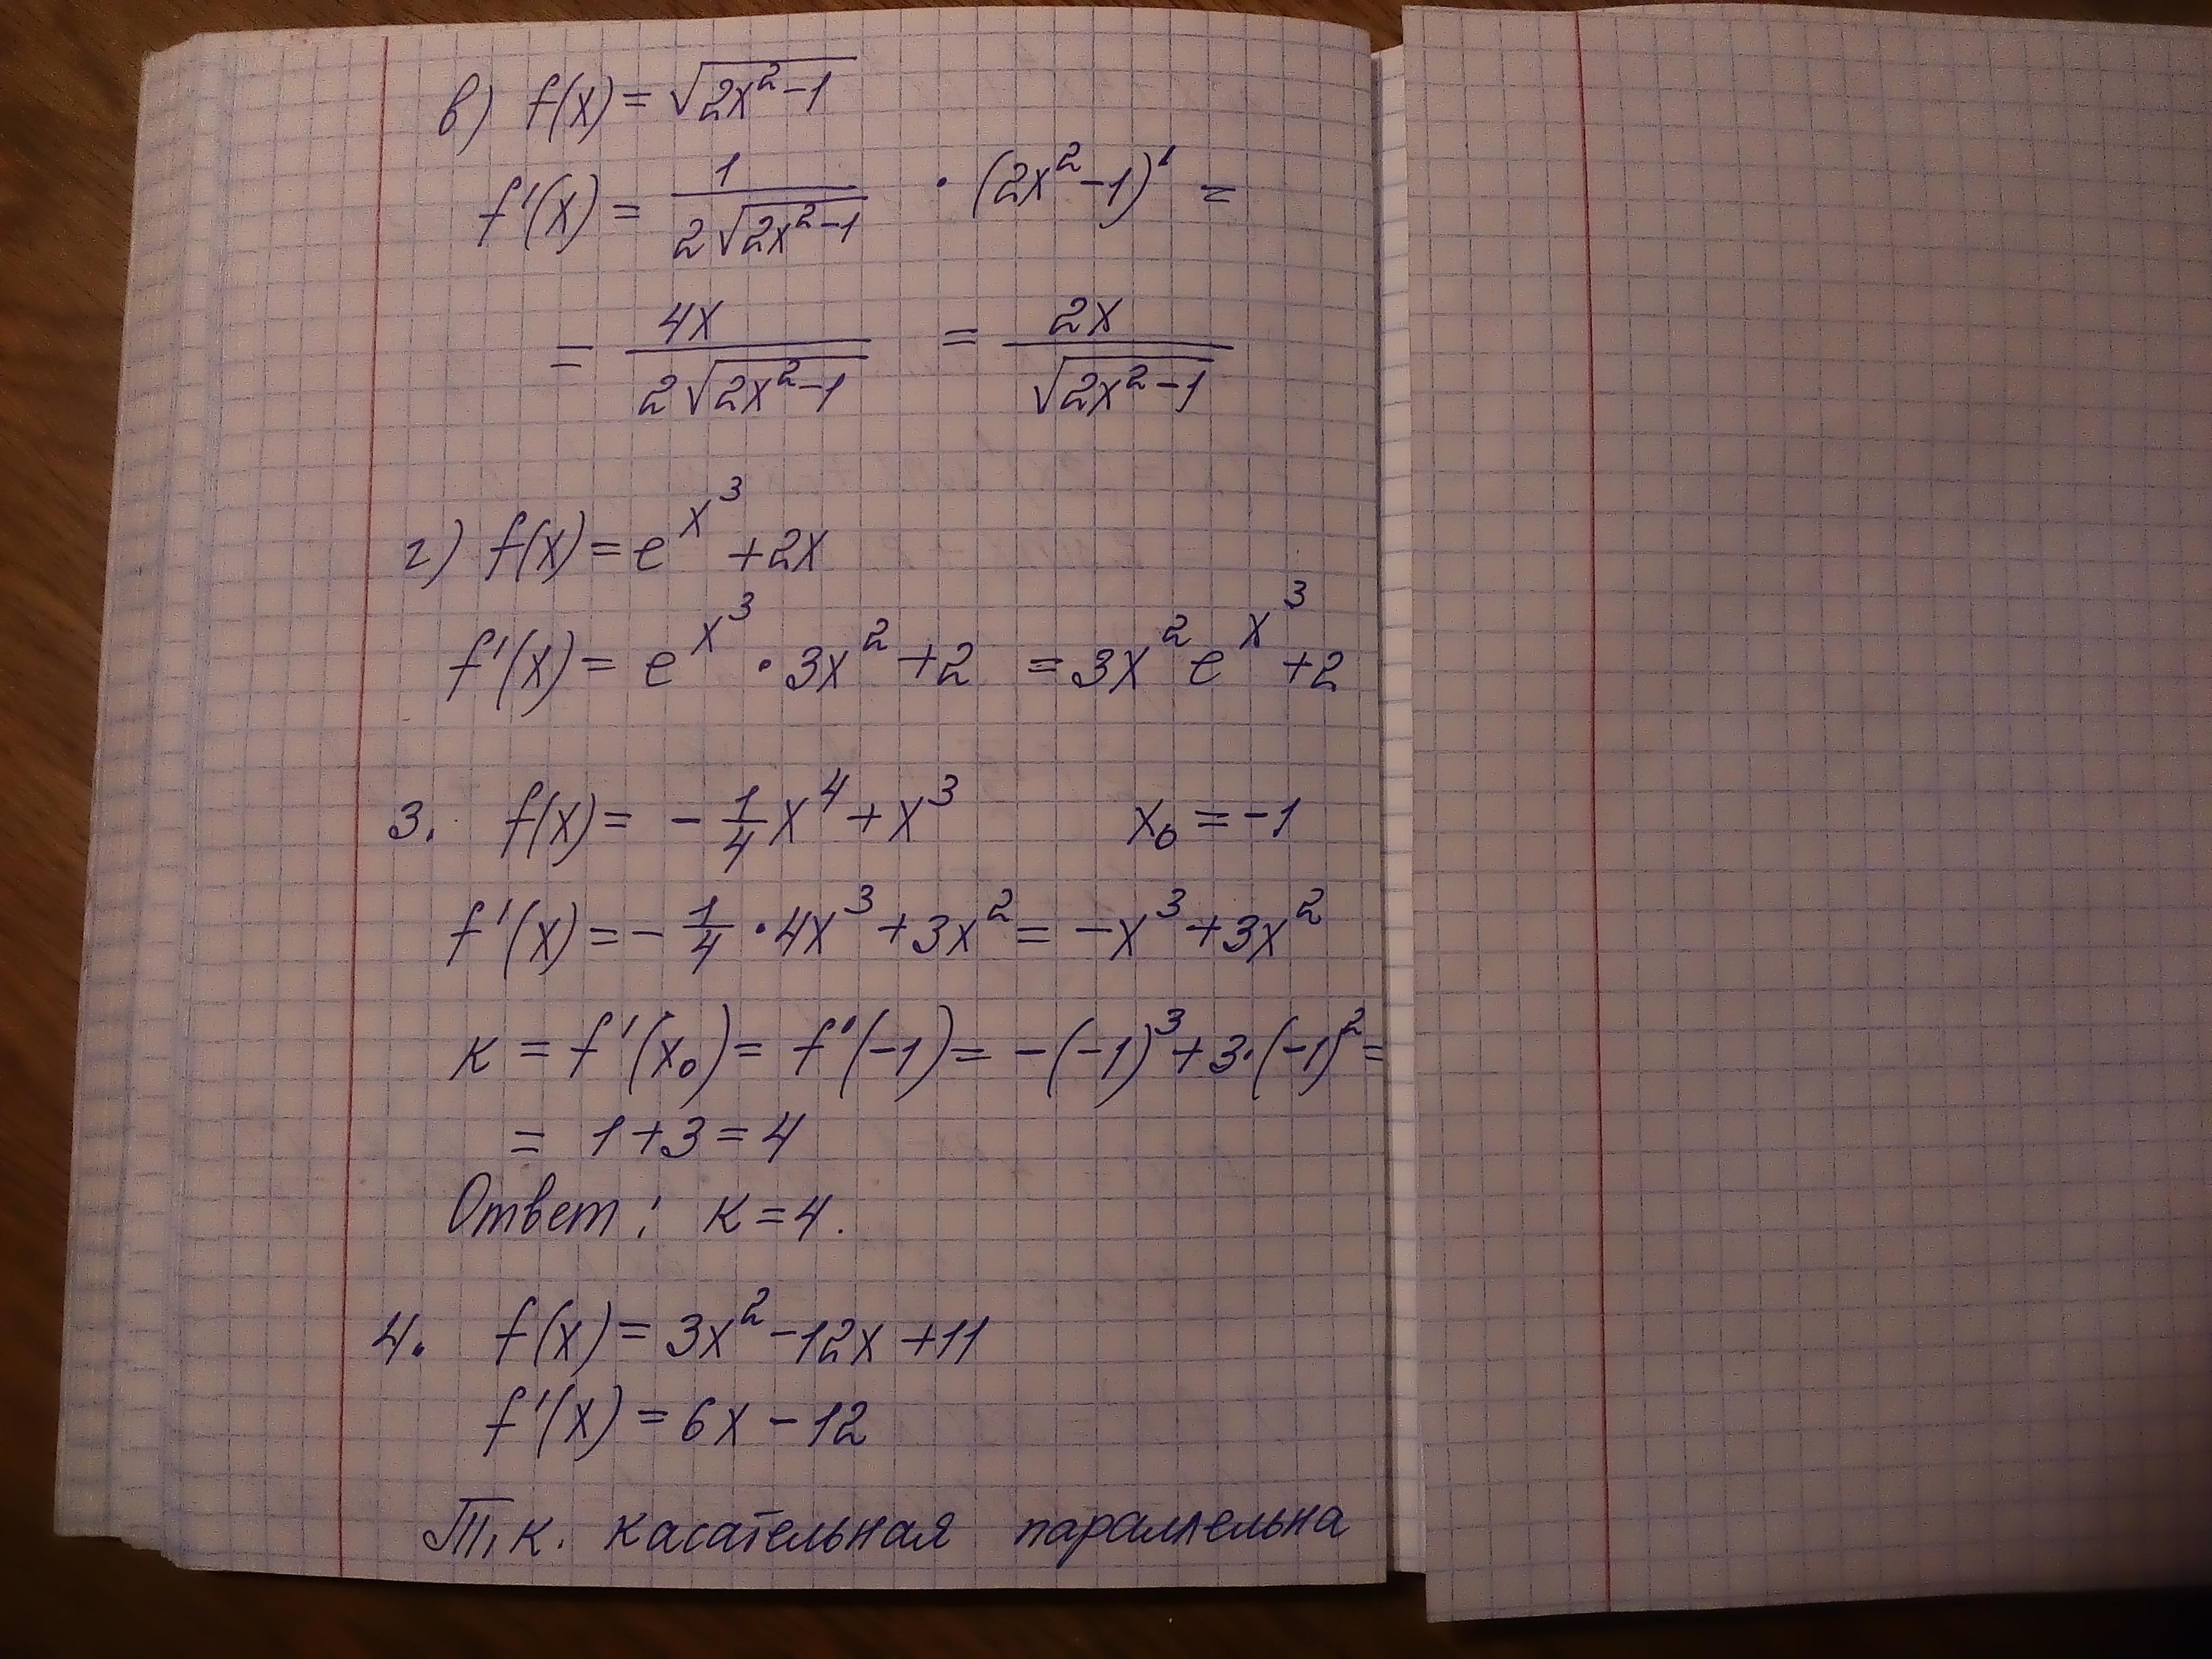 в) f(x) = √(2x² - 1)
f'(x) = 1/(2√(2x² - 1)) · (2x² - 1)' =
= 4x/(2√(2x² - 1)) = 2x/√(2x² - 1)
г) f(x) = e^(x³) + 2x
f'(x) = e^(x³) · 3x² + 2 = 3x² e^(x³) + 2
3. f(x) = - 1/4 x⁴ + x³ x₀ = -1
f'(x) = - 1/4 · 4x³ + 3x² = -x³ + 3x²
к = f'(x₀) = f'(-1) = -(-1)³ + 3·(-1)² =
= 1 + 3 = 4
Ответ: к = 4.
4. f(x) = 3x² - 12x + 11
f'(x) = 6x - 12
Т.к. касательная параллельна